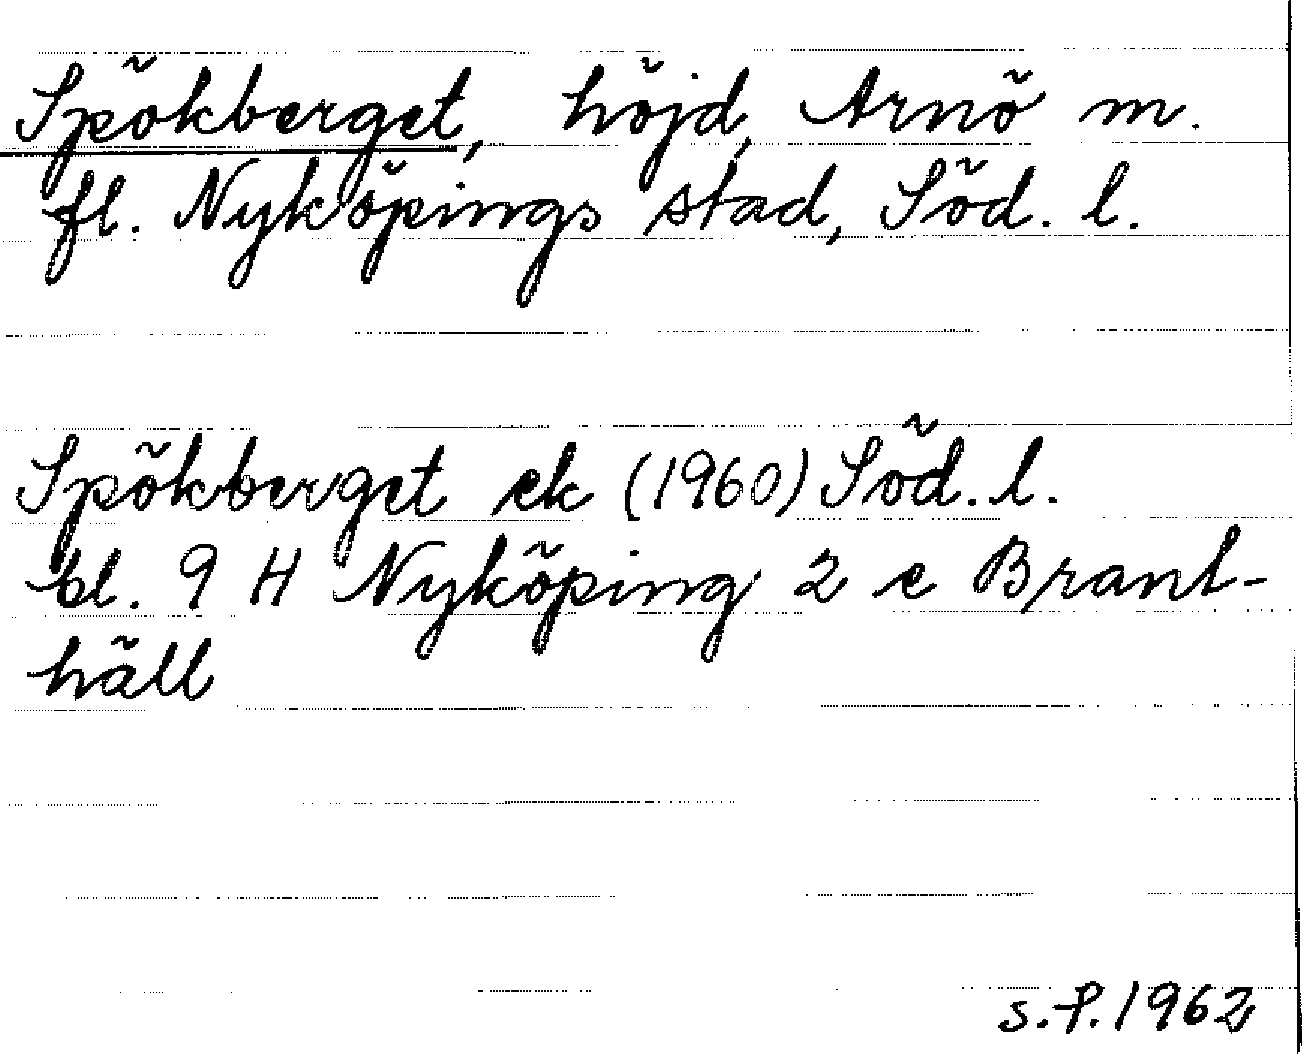 Spökberget, höjd, Arnö m.
fl. Nyköpings stad, Söd. l.
Spökberget ek (1960) Söd. l.
bl. 9 H Nyköping 2 e Brant-
häll
s.f. 1962